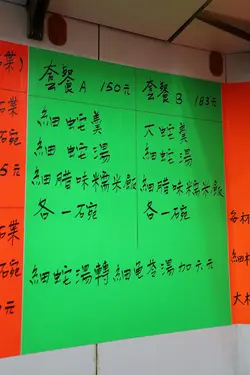 套餐A 150元 套餐B 183元
細蛇羹 大蛇羹
細蛇湯 細蛇湯
細腊味糯米飯 細腊味糯米飯
各一碗 各一碗
細蛇湯轉細龜苓湯加六元
碗
5元
碗
元